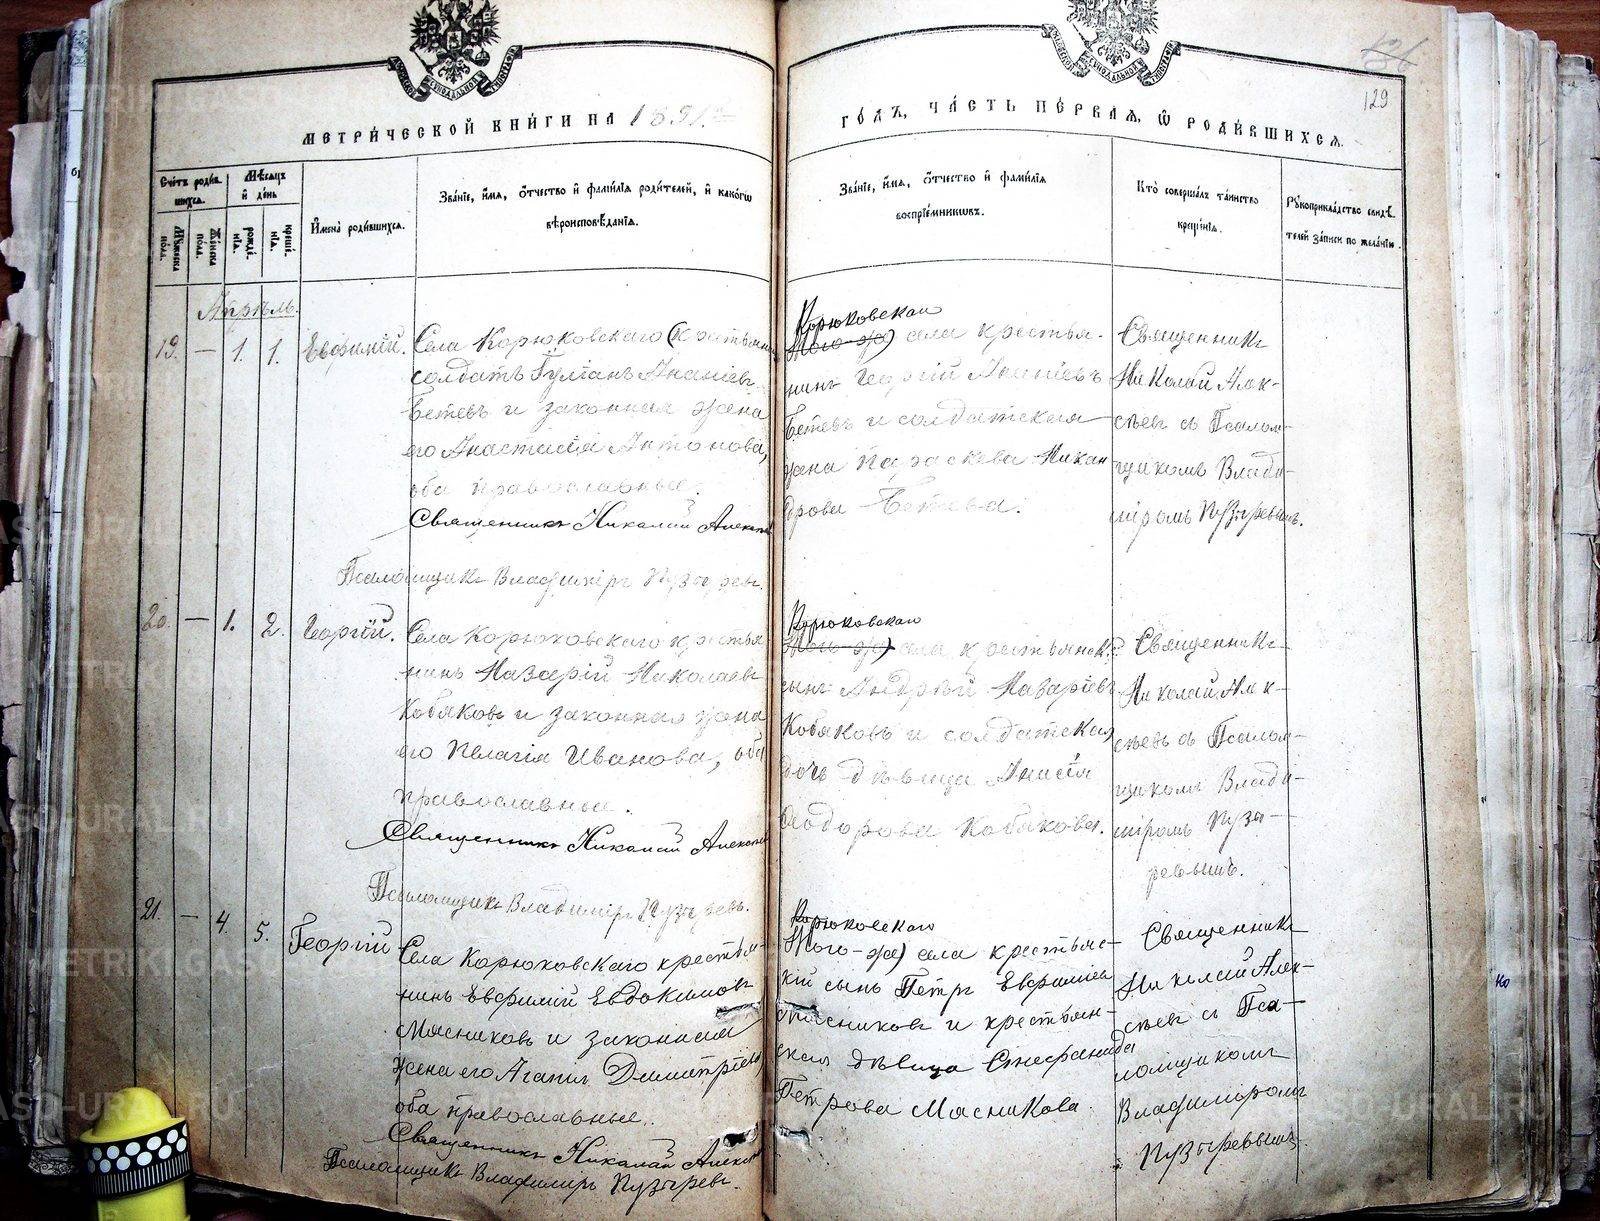 129
МЕТРИ́ЧЕСКОЙ КНИ́ГИ НА 1891
ГО́ДЪ, ЧА́СТЬ ПЕ́РВАЯ, Ѡ РОДИ́ВШИХСЯ.
Сче́тъ роди́вшихся.
Му́жеска по́ла.
Же́нска по́ла.
Мѣ́сяцъ и́ де́нь
рожде́нїя.
креще́нїя.
И҆мена̀ роди́вшихся.
Зва́нїе, и҆́мя, ѻ҆́тчество и҆ фами́лїя роди́телей, и҆ како́гѡ
вѣроисповѣ́данїя.
Зва́нїе, и҆́мя, ѻ҆́тчество и҆ фами́лїя
воспрїе́мникѡвъ.
Кто̀ соверша́лъ та́инство
креще́нїя.
Рꙋкоприкла́дство свидѣ́-
телей за́писи по жела́нїю.
Апрѣль.
19. — 1. 1.
Евфимій.
Села Корюковскаго (крестьянинъ
солдатъ Іуліанъ Ананіевъ
Бетевъ и законная жена
его Анастасія Антонова,
оба православные.
Священникъ Николай Алексѣевъ
Псаломщикъ Владиміръ Пузыревъ.
Корюковскаго
Того-же) села крестья-
нинъ Георгій Ананіевъ
Бетевъ и солдатская
жена Параскева Никан-
дрова Бетева.
Священникъ
Николай Алек-
сѣевъ съ Псалом-
щикомъ Влади-
міромъ Пузыревымъ.
20. — 1. 2.
Георгій.
Села Корюковскаго крестья
нинъ Назарій Николаевъ
Кобяковъ и законная жена
его Пелагія Иванова, оба
православные.
Священникъ Николай Алексѣевъ
Псаломщикъ Владиміръ Пузыревъ.
Корюковскаго
Того-же) села крестьянскій
сынъ Андрей Назаріевъ
Кобяковъ и солдатская
дочь дѣвица Анисія
Ѳеодорова Кобякова.
Священникъ
Николай Алек-
сѣевъ съ Псалом-
щикомъ Влади-
міромъ Пузы-
ревымъ.
21. — 4. 5.
Георгій
Села Корюковскаго крестья-
нинъ Евфимій Евдокимовъ
Мясниковъ и законная
жена его Агапія Димитріева,
оба православные.
Священникъ Николай Алексѣевъ
Псаломщикъ Владиміръ Пузыревъ.
Корюковскаго
Того-же) села крестьянс-
кій сынъ Петръ Евфиміевъ
Мясниковъ и крестьян-
ская дѣвица Стефанида
Петрова Мясникова.
Священникъ
Николай Алек-
сѣевъ съ Пса-
ломщикомъ
Владиміромъ
Пузыревымъ.